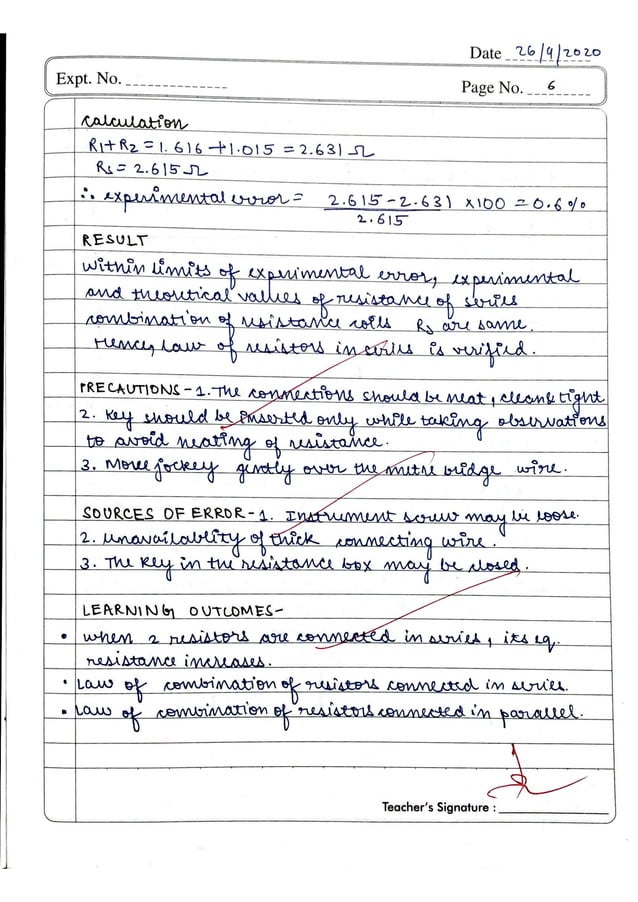 Date 26/9/2020
Expt. No.
Page No. 6
Calculation
R1+R2 = 1.616 + 1.015 = 2.631 Ω
Rs = 2.615 Ω
∴ experimental error = 2.615 - 2.631 / 2.615 × 100 = 0.6 %
RESULT
within limits of experimental error, experimental
and theoritical values of resistance of series
combination of resistance coils Rs are same.
Hence, law of resistors in series is verified.
PRECAUTIONS - 1. The connections should be neat, clean & tight
2. Key should be inserted only while taking observations
to avoid heating of resistance.
3. Move jockey gently over the metre bridge wire.
SOURCES OF ERROR - 1. Instrument screw may be loose.
2. unavailablity of thick connecting wire.
3. The key in the resistance box may be closed.
LEARNING OUTCOMES -
• when 2 resistors are connected in series, its eq.
resistance increases.
• Law of combination of resistors connected in series.
• Law of combination of resistors connected in parallel.
Teacher's Signature :